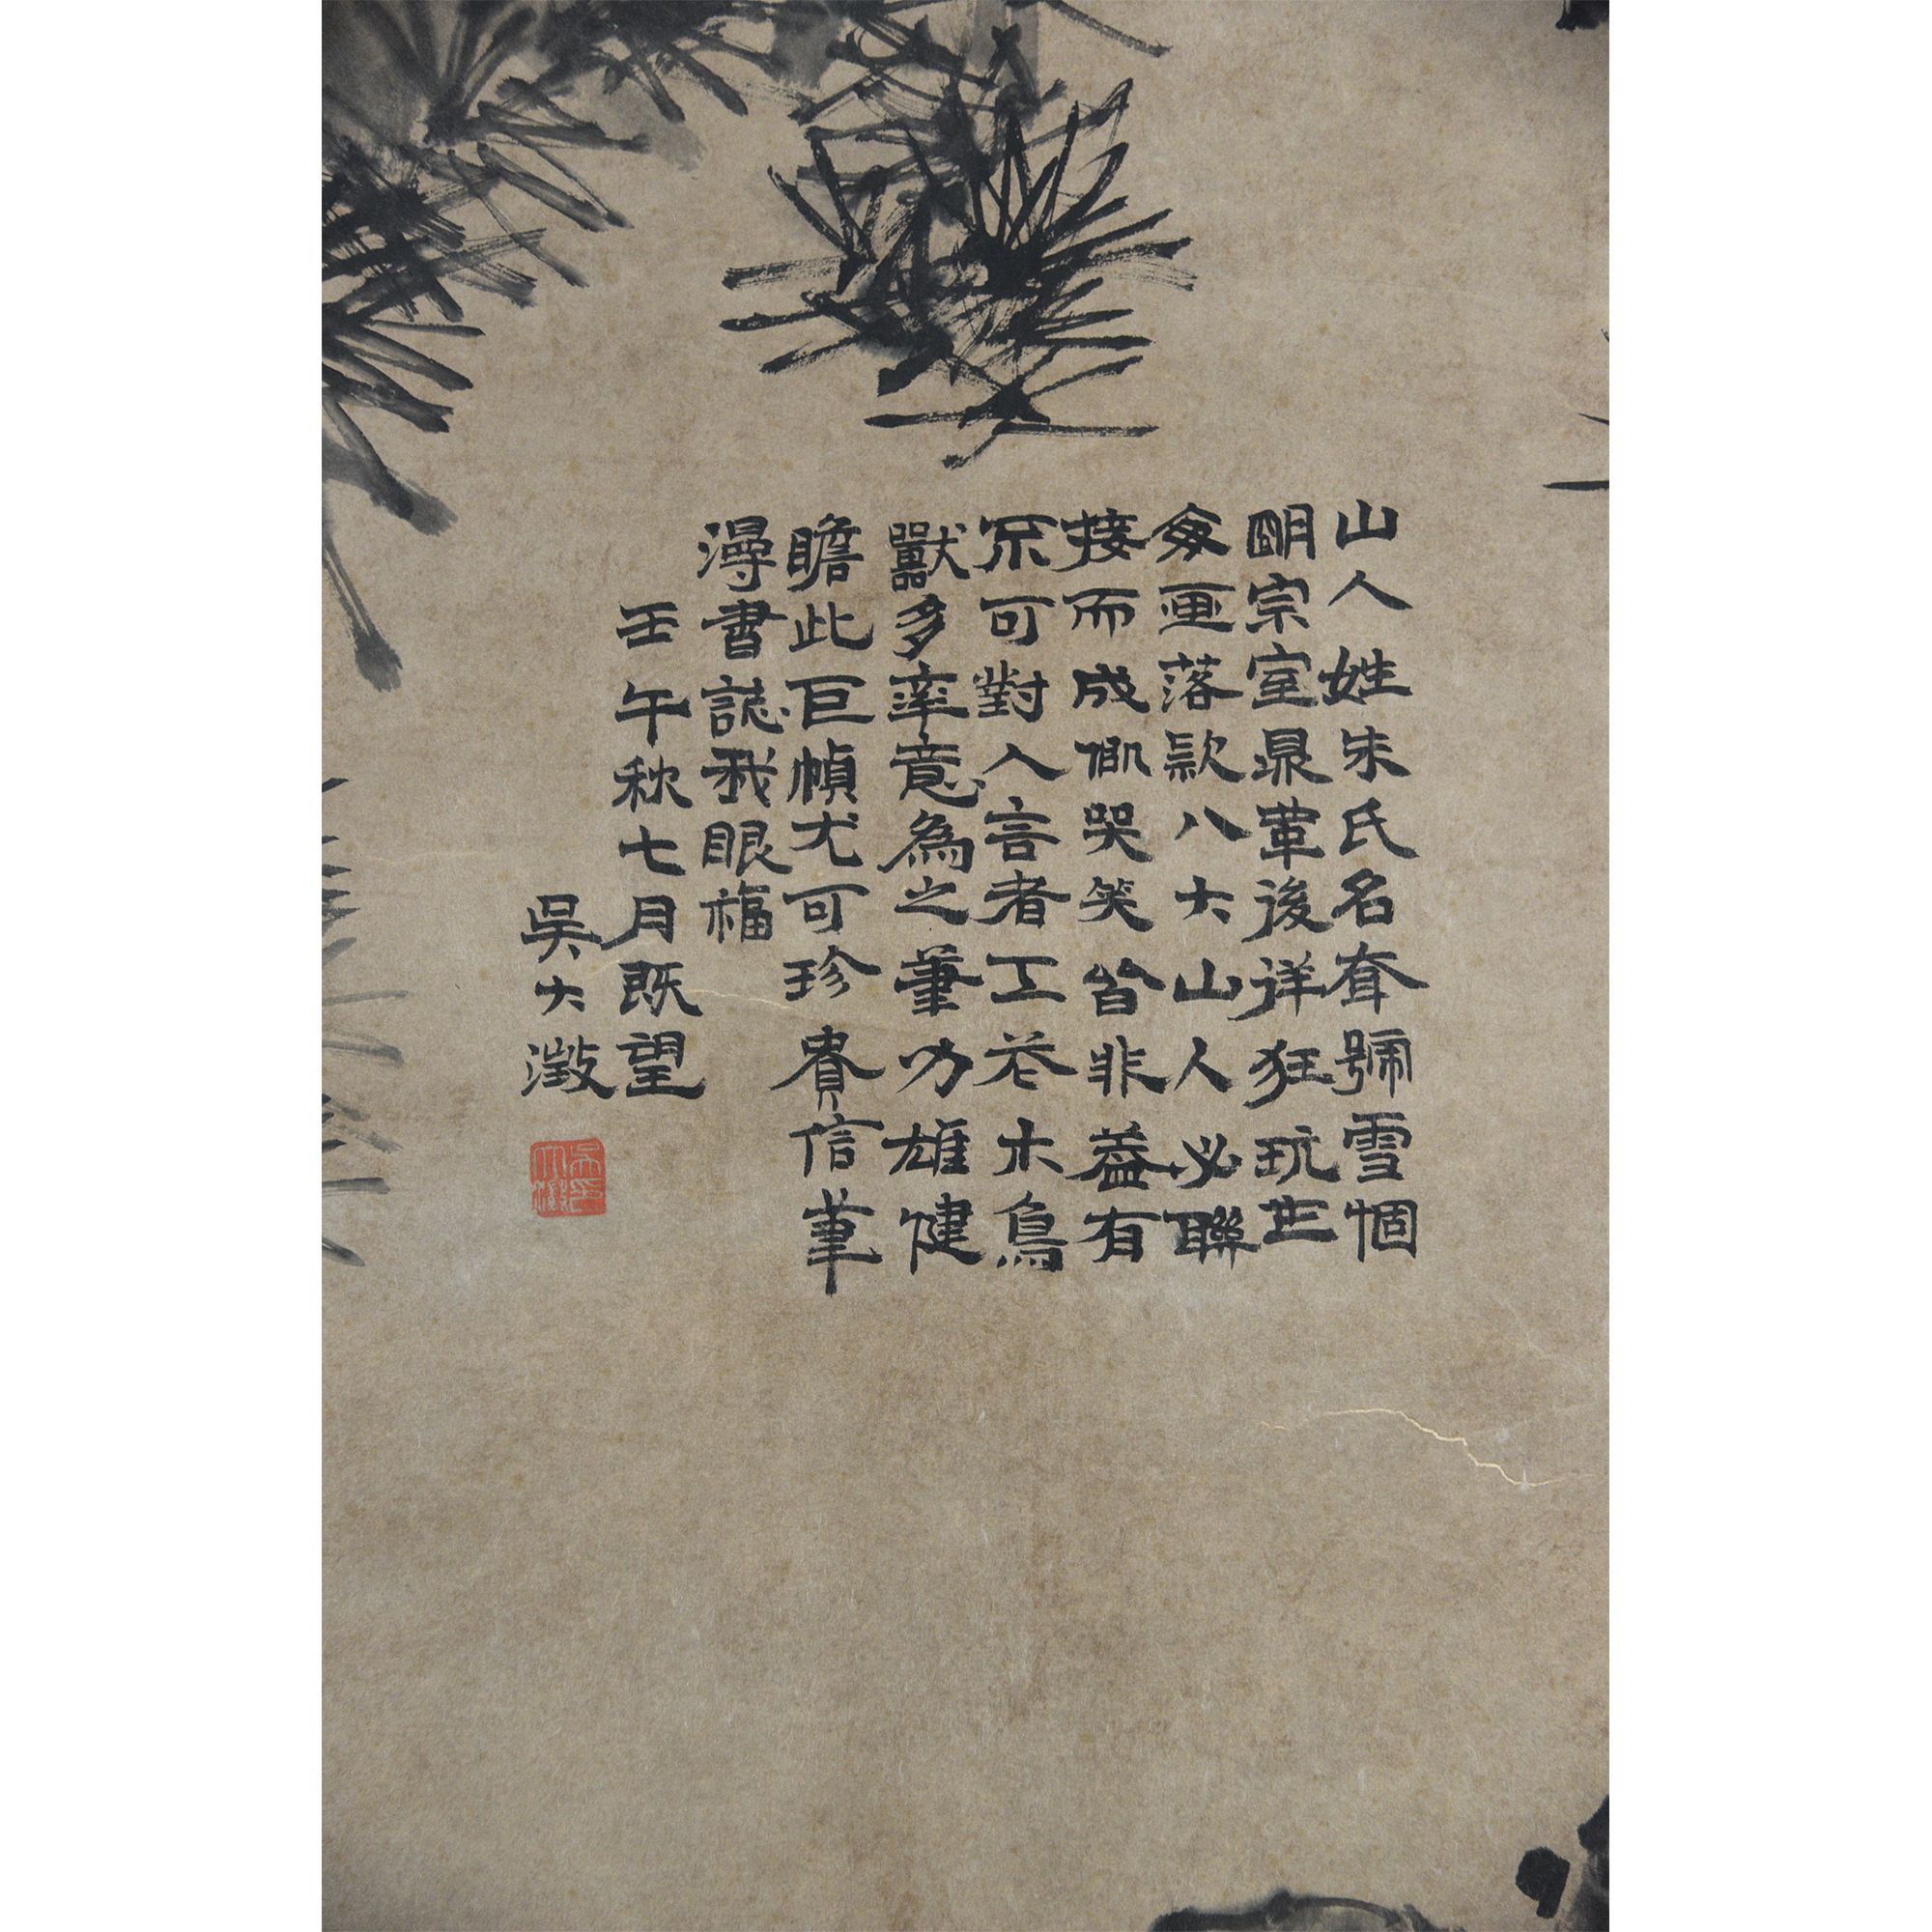 山人姓朱氏名耷號雪個
朙宗室鼎革後佯狂玩世
每画落款八大山人必聯
接而成似哭笑皆非蓋有
不可對人言者工花木鳥
獸多率意為之筆力雄健
瞻此巨幀尤可珍貴信筆
漫書誌我眼福
壬午秋七月既望
吳大澂
吳印大澂